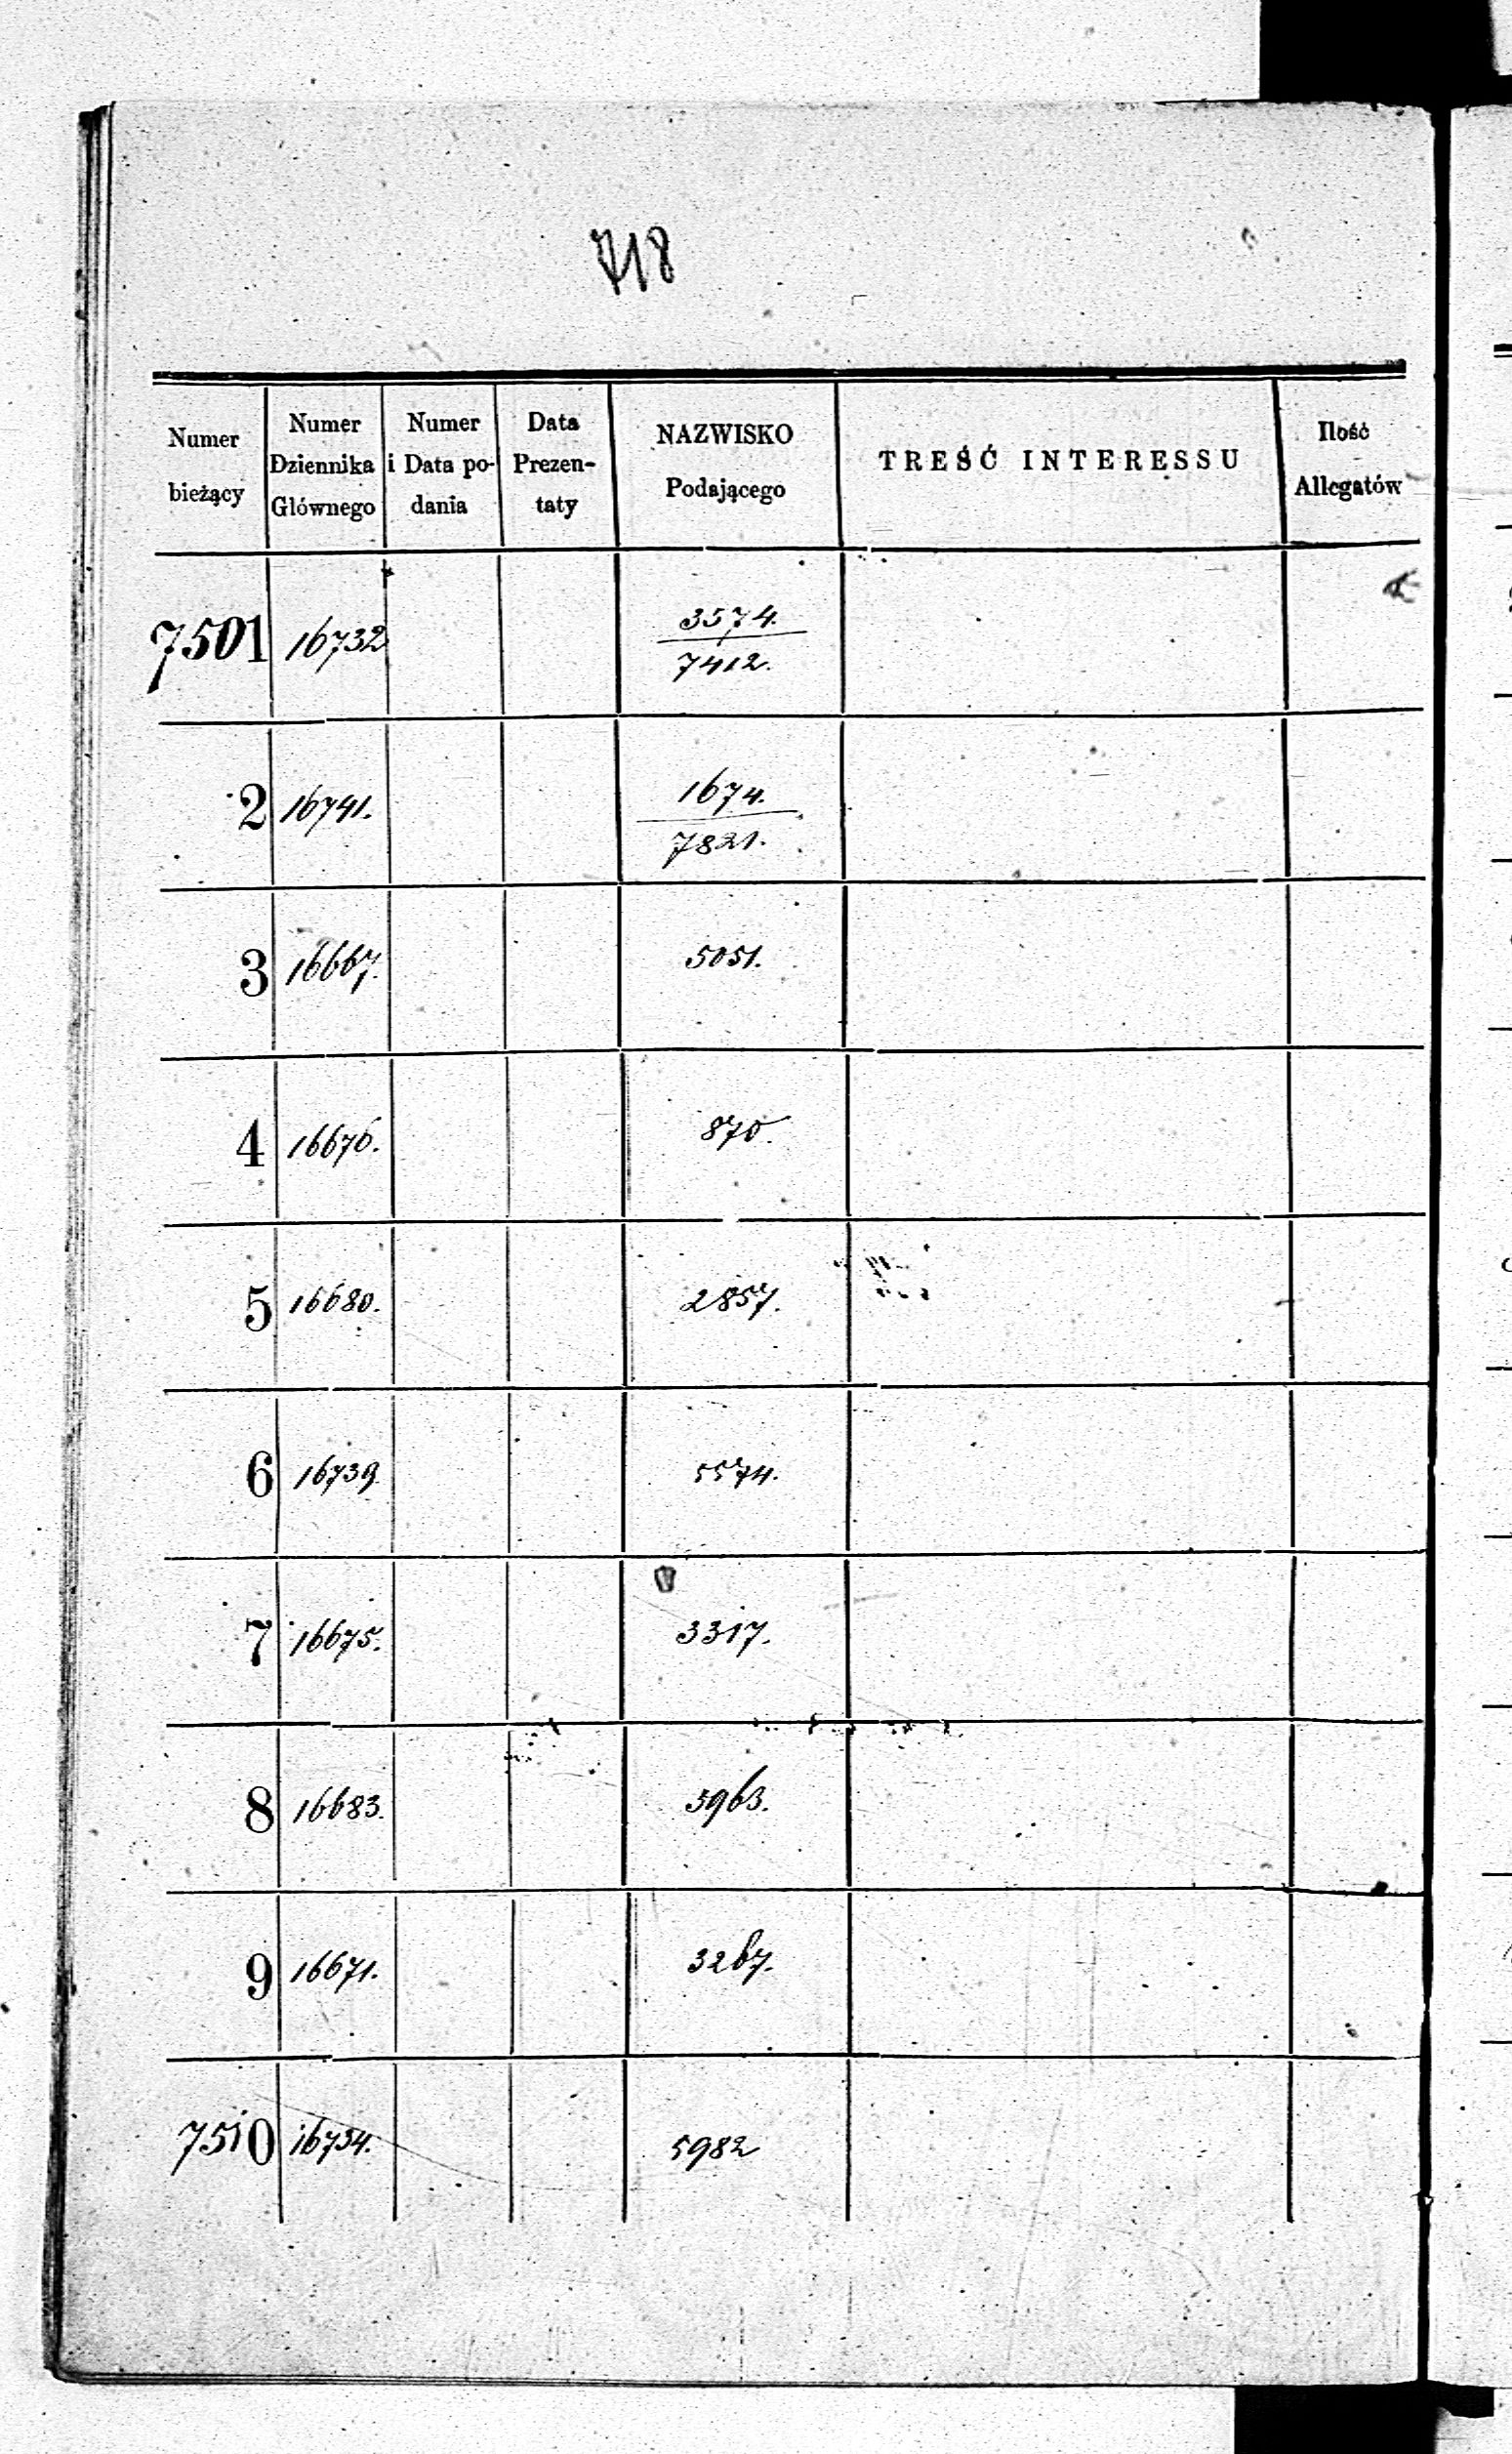 718
Numer bieżący | Numer Dziennika Głównego | Numer i Data po- dania | Data Prezen- taty | NAZWISKO Podającego | TREŚĆ INTERESSU | Ilość Allegatów
7501 | 16732 | | | 3574. / 7412. | |
2 | 16741. | | | 1674. / 7821. | |
3 | 16667. | | | 5051. | |
4 | 16676. | | | 870. | |
5 | 16680. | | | 2857. | |
6 | 16739. | | | 5574. | |
7 | 16675. | | | 3317. | |
8 | 16683. | | | 5963. | |
9 | 16671. | | | 3267. | |
7510 | 16734. | | | 5982 | |